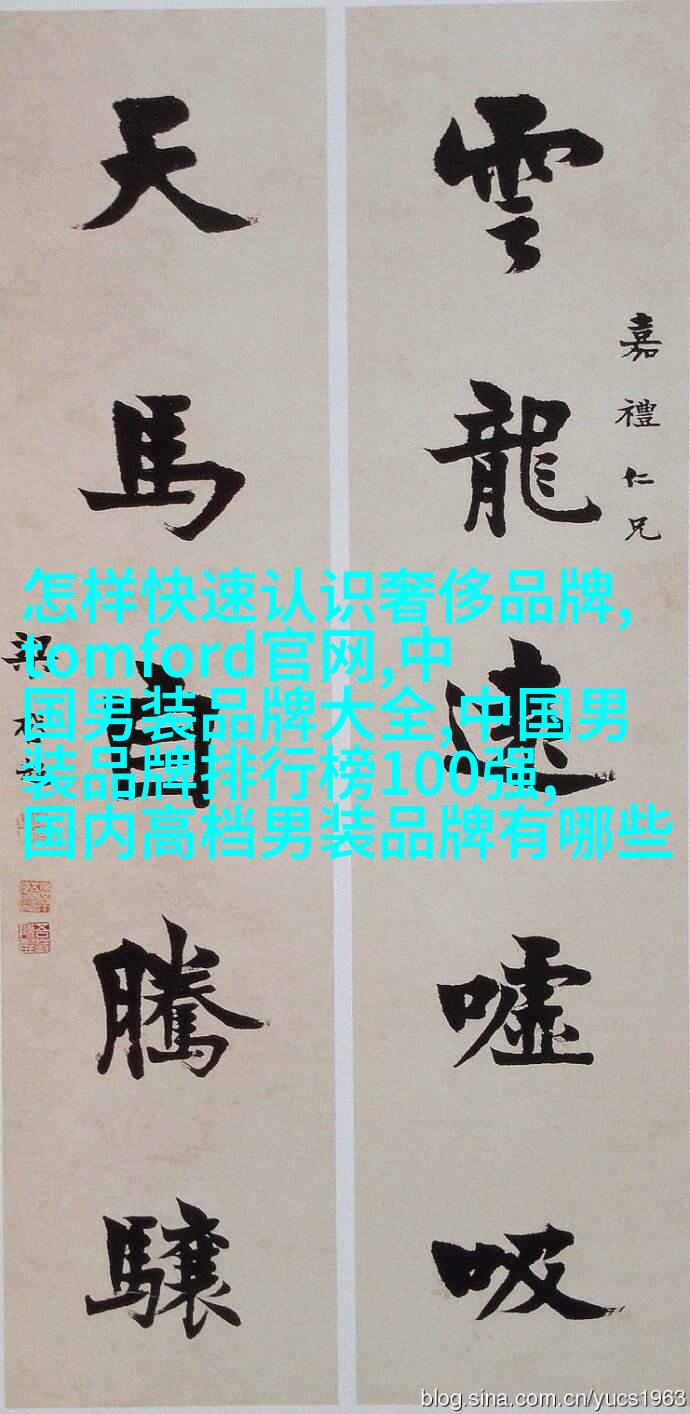 雲龍遠噓吸
嘉禮仁兄
天馬自騰驤
梁
怎样快速认识奢侈品牌,
tomford官网,中
国男装品牌大全,中国男
装品牌排行榜100强,
国内高档男装品牌有哪些
blog.sina.com.cn/yucs1963